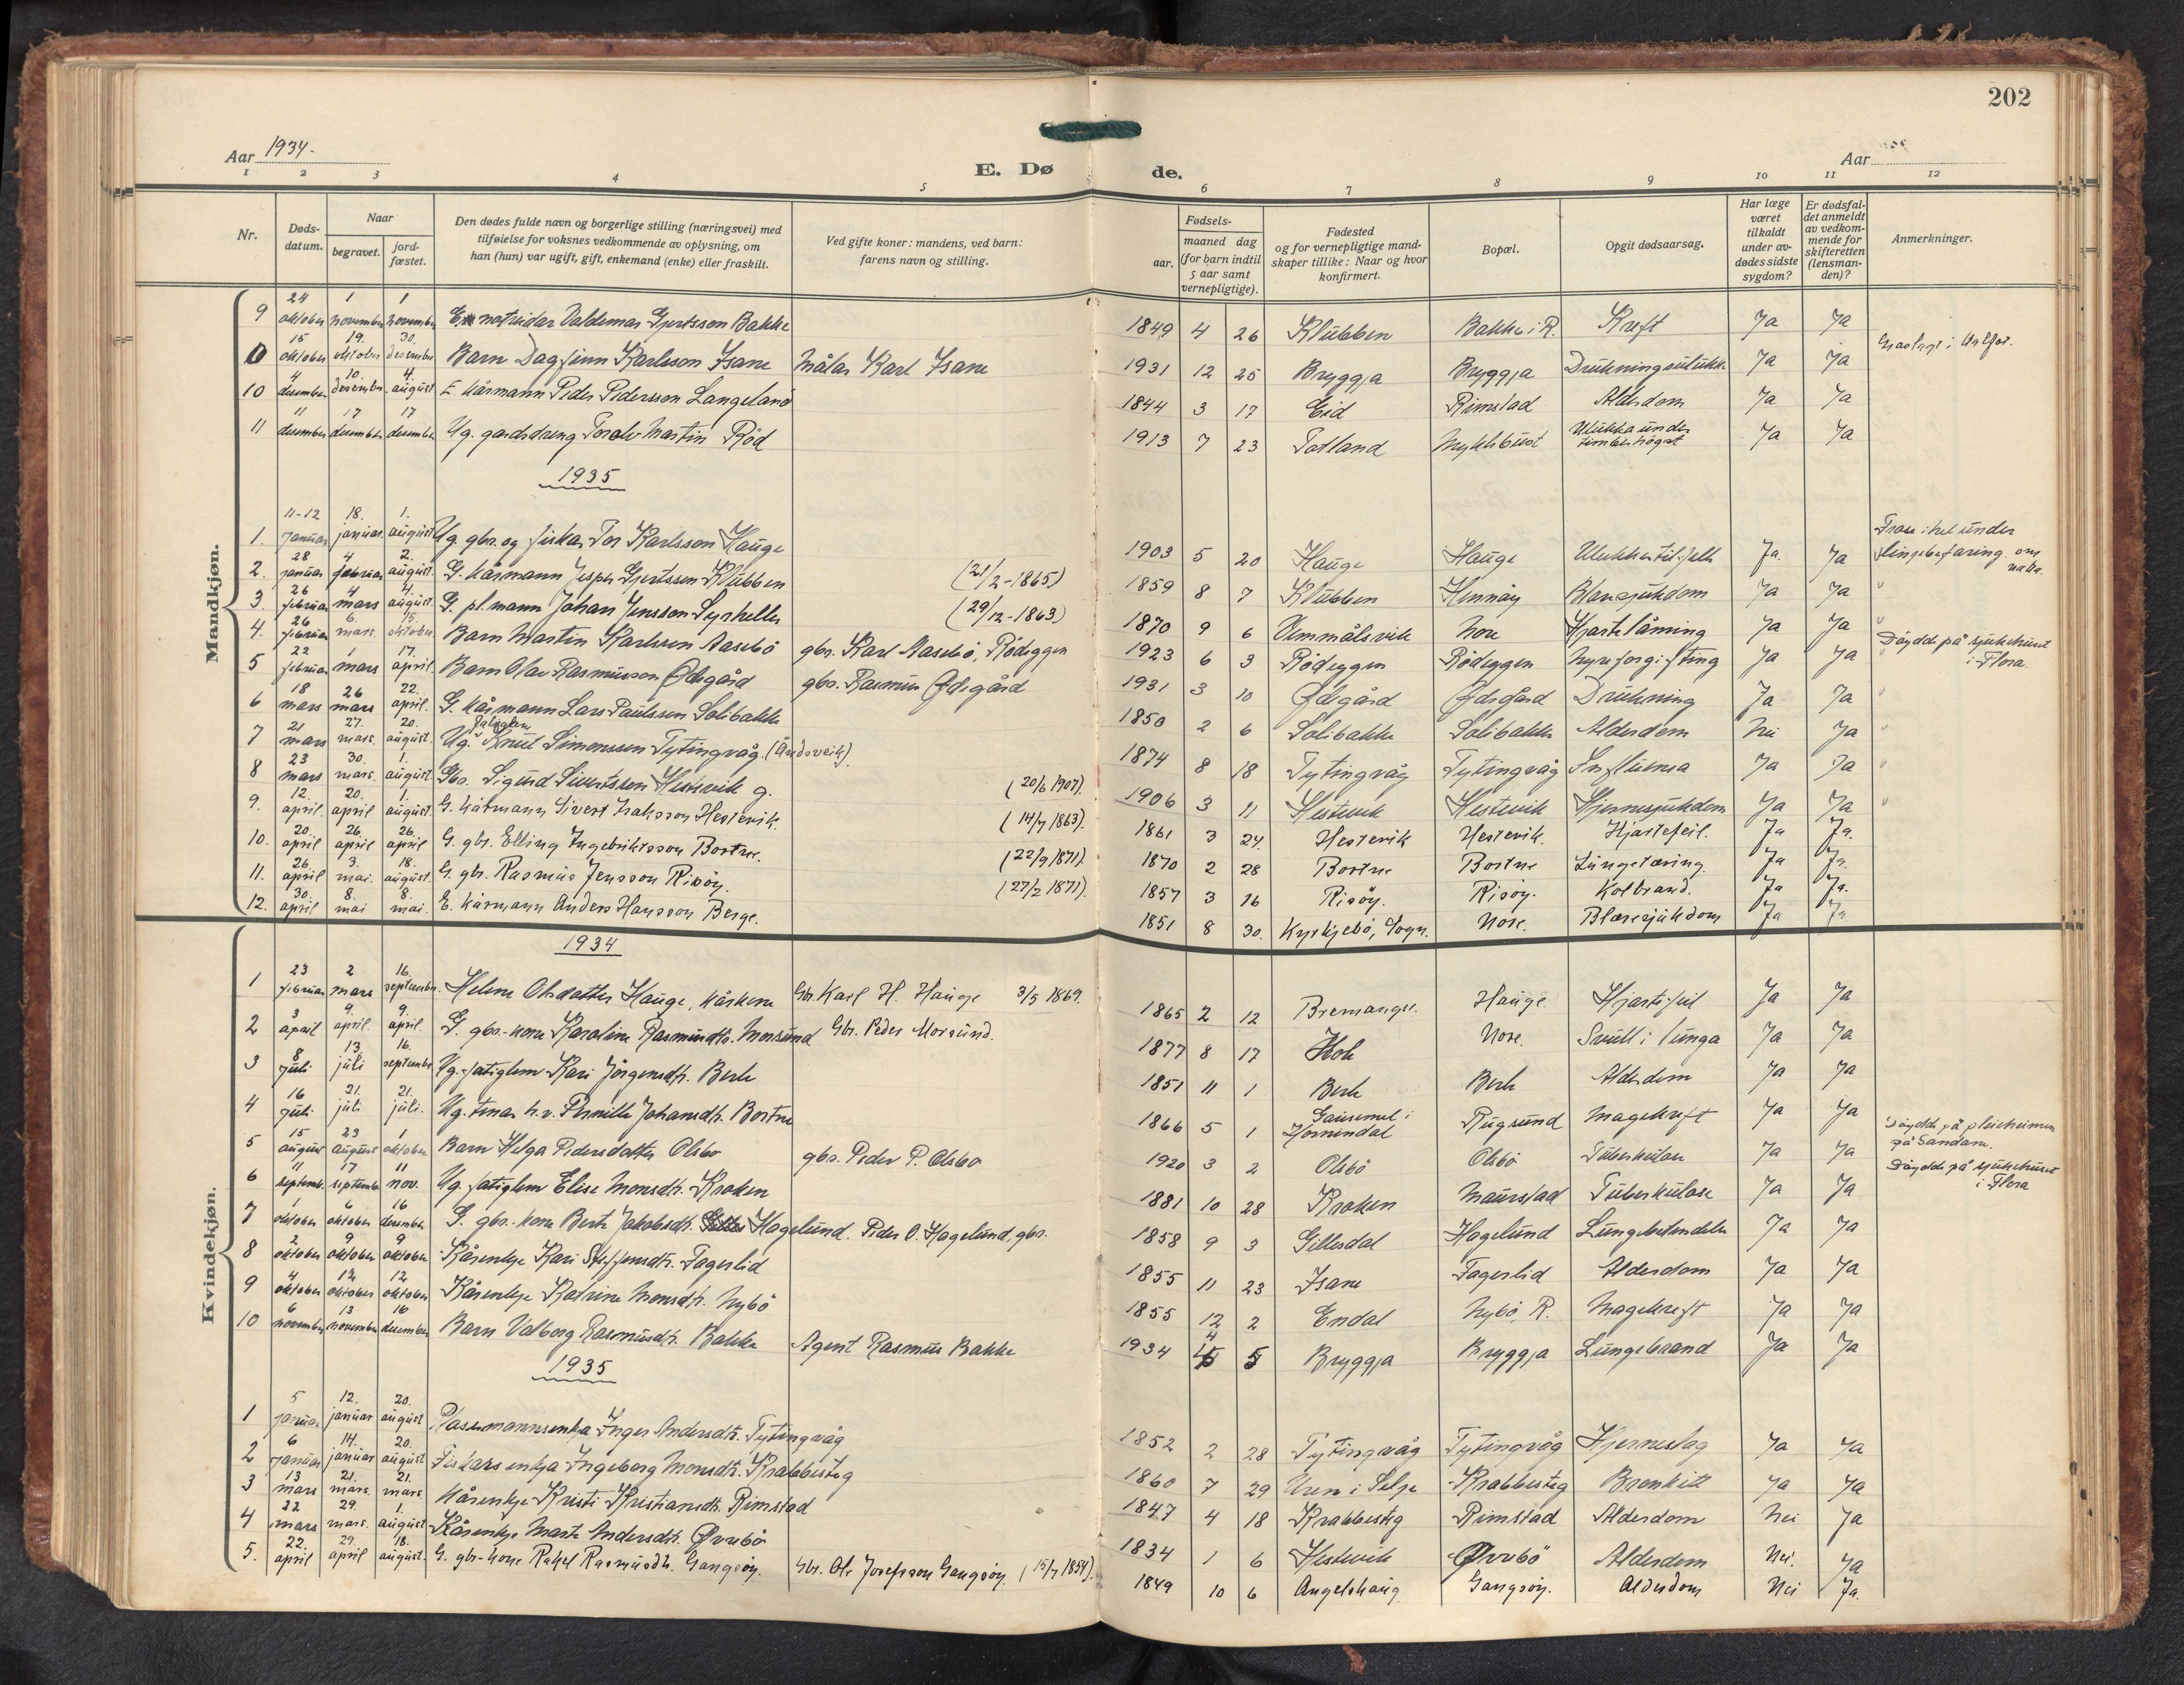 202
Aar 1934.
E. Døde.
Aar
1 2 3 4 5 6 7 8 9 10 11 12
Nr.
Døds-datum.
Naar
begravet.
jord-fæstet.
Den dødes fulde navn og borgerlige stilling (næringsvei) med
tilføielse for voksnes vedkommende av oplysning, om
han (hun) var ugift, gift, enkemand (enke) eller fraskilt.
Ved gifte koner: mandens, ved barn:
farens navn og stilling.
Fødsels-
aar.
maaned dag
(for barn indtil
5 aar samt
vernepligtige).
Fødested
og for vernepligtige mand-
skaper tillike: Naar og hvor
konfirmert.
Bopæl.
Opgit dødsaarsag.
Har læge
været
tilkaldt
under av-
dødes sidste
sygdom?
Er dødsfal-
det anmeldt
av vedkom-
mende for
skifteretten
(lensman-
den)?
Anmerkninger.
Mandkjøn.
9 24 oktober 1 november 1 november E. notridar Valdemar Gjertsson Bakke 1849 4 26 Klubben Bakke i R. Kreft Ja Ja
15 oktober 19. oktober 30. desember Barn Dagfinn Karlsson Isane Målar Karl Isane 1931 12 25 Bryggja Bryggja Drukningsulukke Ja Ja
10 4 desember 10. desember 4. august E. kårmann Peder Pedersson Langeland 1844 3 17 Eid Rimstad Alderdom Ja Ja
11 11 desember 17 desember 17 desember Ug. gardsdreng Torolv Martin Röd 1913 7 23 Totland Myklebust Ulukka under tømmerhogst Ja Ja
1935
1. 11-12 januar 18. januar 1. august Ug. gbr. og fiskar Tor Karlsson Hauge 1903 5 20 Hauge Hauge Ulukke til fjells Ja. Ja Fraus ihel under
2. 28 januar 4 februar 2. august G. kårmann Jesper Gjertsson Klubben (21/2-1865) 1859 8 7 Klubben Hennöy Blæresjukdom Ja Ja "
3. 26 februar 4 mars 4. august. G. pl. mann Johan Jensson Lyshelle (29/12-1863) 1870 9 6 Ummålsvik Nore Hjartelåming Ja Ja "
4. 26 februar 6. mars. 15. oktober Barn Martin Karlsson Aasebö gbr. Karl Aasebö, Rödeggen 1923 6 3 Rödeggen Rödeggen Nyreforgifting Ja Ja Döydde på sjukehuset i Flora
5 22 februar 1 mars 17. april Barn Olav Rasmusson Ødegård gbr. Rasmus Ødegård 1931 3 10 Ødegård Ødegård Drukning Ja Ja "
6 18 mars 26 mars 22. april. G. kårmann Lars Paulsson Solibakke 1850 2 6 Solibakke Solibakke Alderdom Nei Ja "
7 21 mars 27. mars. 20. august. Ug. fatiglem Knut Simonsson Tytingvåg (Åndsveik) 1874 8 18 Tytingvåg Tytingvåg Influensa Ja Ja "
8 23 mars 30. mars. 1. august Gbr. Sigurd Sivertsson Hestevik g. (20/6 1907). 1906 3 11 Hestevik Hestevik Hjernesjukdom Ja Ja "
9. 12. april 20. april 1. august G. kårmann Sivert Isaksson Hestevik. (14/7 1863). 1861 3 24. Hestevik Hestevik. Hjartefeil. Ja Ja.
10. 20. april 26. april 26. april G. gbr. Elling Ingebriktsson Bortne. (22/9 1871). 1870 2 28 Bortne Bortne Lungetæring. Ja Ja.
11. 26. april 3. mai. 18. august. G. gbr. Rasmus Jensson Risöy. (27/2 1871). 1857 3 16 Risöy. Risöy. Kolbrand. Ja Ja.
12. 30. april 8. mai 8. mai. E. kårmann Anders Hansson Berge. 1851 8 30. Kyrkjebö, Sogn. Nore. Blæresjukdom Ja Ja
Kvindekjøn.
1934
1 23 februar 2 mars 16. september. Helene Olsdotter Hauge, kårkone Gbr. Karl H. Hauge 3/5 1869. 1865 2 12 Bremanger. Hauge Hjartefeil Ja Ja
2 3 april 9. april. 9. april. G. gbr.-kone Karoline Rasmusdtr. Morsund Gbr. Peder Morsund. 1877 8 17 Hole Nore. Svull i lunga Ja Ja
3 8 juli 13. juli 16. september Ug. fatiglem Kari Jörgensdtr. Berle 1851 11 1 Berle Berle Alderdom Ja Ja
4 16 juli 21. juli 21. juli. Ug. tenar h.v. Pernille Johansdtr. Bortne 1866 5 1 Hornindal Rugsund Magekreft Ja Ja
5 15 august 23 august 1 oktober Barn Helga Pedersdotter Olsbö gbr. Peder P. Olsbö 1920 3 2 Olsbö Olsbö Tuberkulose Ja Ja Döydde på pleieheimen på Sandane.
6 11 septemb. 17 september 11 nov. Ug. fatiglem Elise Monsdtr. Kroken 1881 10 28 Kroken Maurstad Tuberkulose Ja Ja Döydde på sjukehuset i Flora
7 1 oktober 6 oktober 16 desember G. gbr.-kone Berte Jakobsdtr. Hagelund. Peder O. Hagelund, gbr. 1858 9 3 Gillesdal Hagelund Lungebetendelse Ja Ja
8 2 oktober 9 oktober 9 oktober Kårenkje Kari Steffensdtr. Fagerlid 1855 11 23 Isane Fagerlid Alderdom Ja Ja
9 4 oktober 12 oktober 12 oktober Kårenkje Katrine Monsdtr. Nybö 1855 12 2 Endal Nybö, R. Magekreft Ja Ja
10 6 november 13 november 16 desember Barn Valborg Rasmusdtr. Bakke Agent Rasmus Bakke 1934 4 5 Bryggja Bryggja Lungebrand Ja Ja
1935
1 5 januar 12. januar 20. august Plassmannsenkja Inger Andersdtr. Tytingvåg 1852 2 28 Tytingvåg Tytingvåg Hjerneslag Ja Ja
2 6 januar 14. januar 20. august Fiskarsenkja Ingeborg Monsdtr. Krabbesteg 1860 7 29 Uren i Selje Krabbesteg Bronkitt Ja Ja
3 13 mars 21. mars. 21. mars. Kårenkje Kristi Kristiansdtr. Rimstad 1847 4 18 Krabbesteg Rimstad Alderdom Nei Ja
4 22 mars 29. mars. 1. august Kårenkje Marte Andersdtr. Øvrebö 1834 1 6 Hestevik Øvrebö Alderdom Nei. Ja
5. 22. april 29. april 18. august. G. gbr.-kone Rakel Rasmusdtr. Gangsöy. Gbr. Ole Josefsson Gangsöy. (15/7 1854). 1849 10 6 Angelshaug Gangsöy. Alderdom Nei Ja.